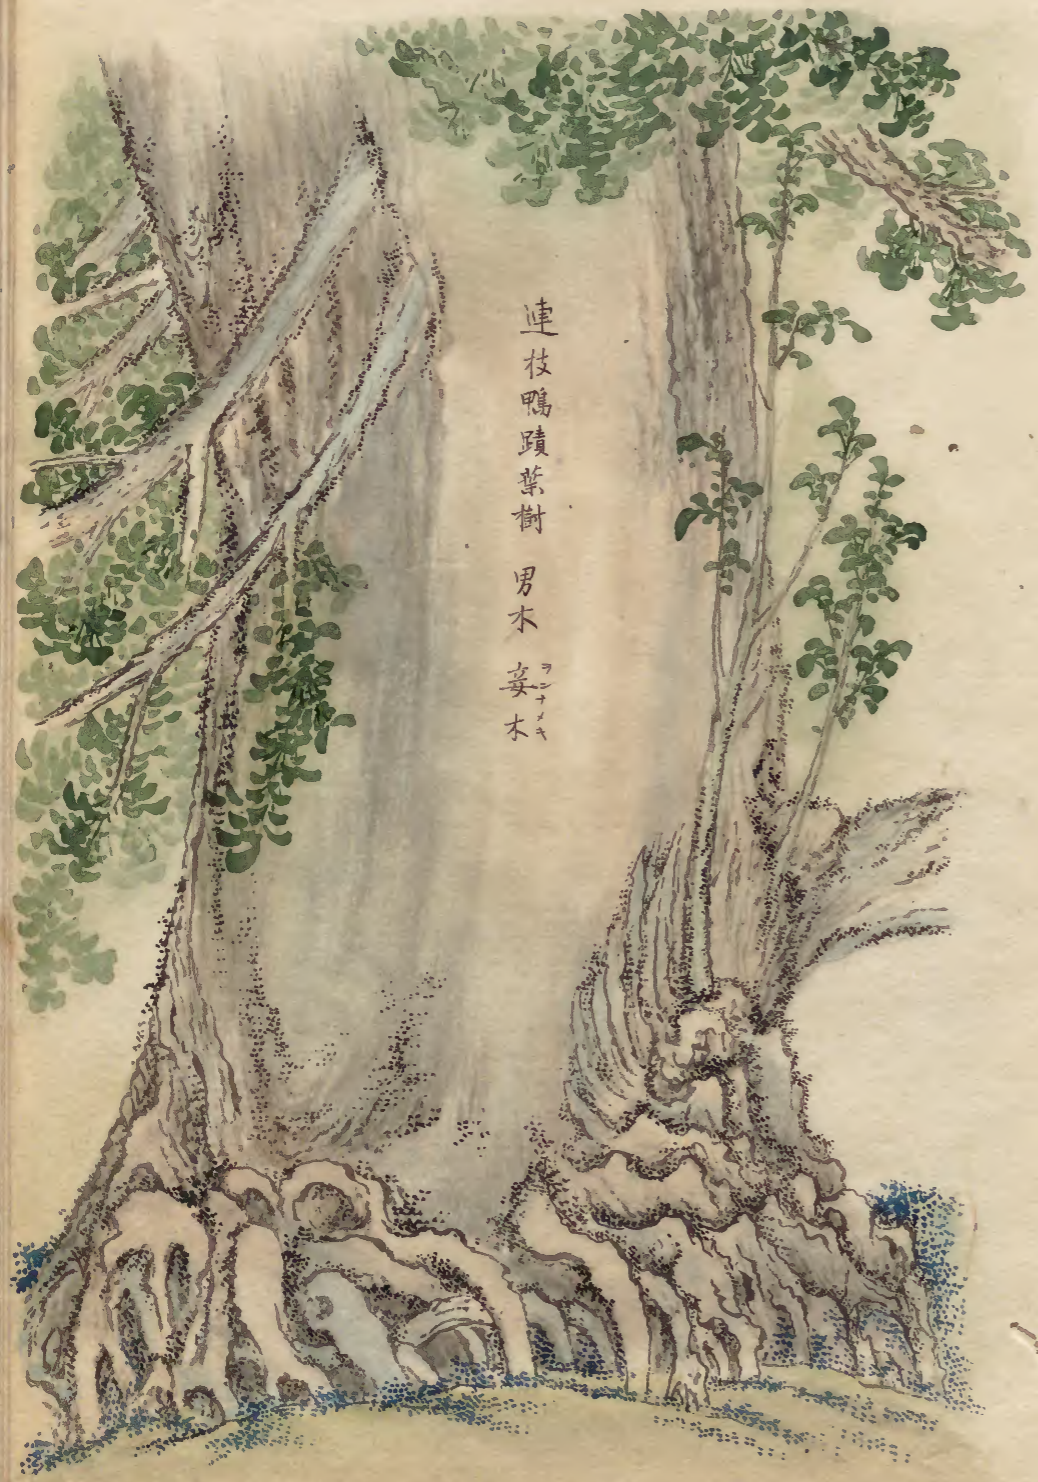 連枝鴨蹟葉樹 男木 妾木
ヲンナメキ